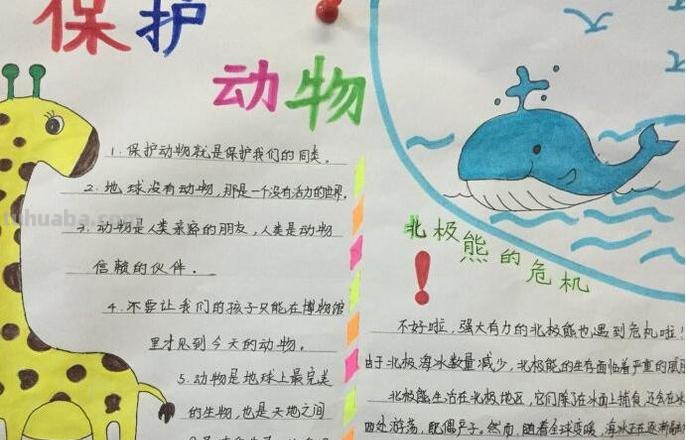 保护
动物
1. 保护动物就是保护我们的同类。
2. 地球没有动物,那是一个没有活力的世界。
3. 动物是人类亲密的朋友,人类是动物
信赖的伙伴.
4. 不要让我们的孩子只能在博物馆
里才见到今天的动物.
5. 动物是地球上最完美
的生物,也是天地之间
tuhuaba.com
北极熊的危机
!
不好啦,强大有力的北极熊也遇到危机啦!
由于北极海冰数量减少,北极熊的生存面临着严重的
北极熊生活在北极地区,它们除了在冰面上捕食,还会在冰
四处游荡,配偶产子。然而,随着全球变暖,海冰正在逐渐